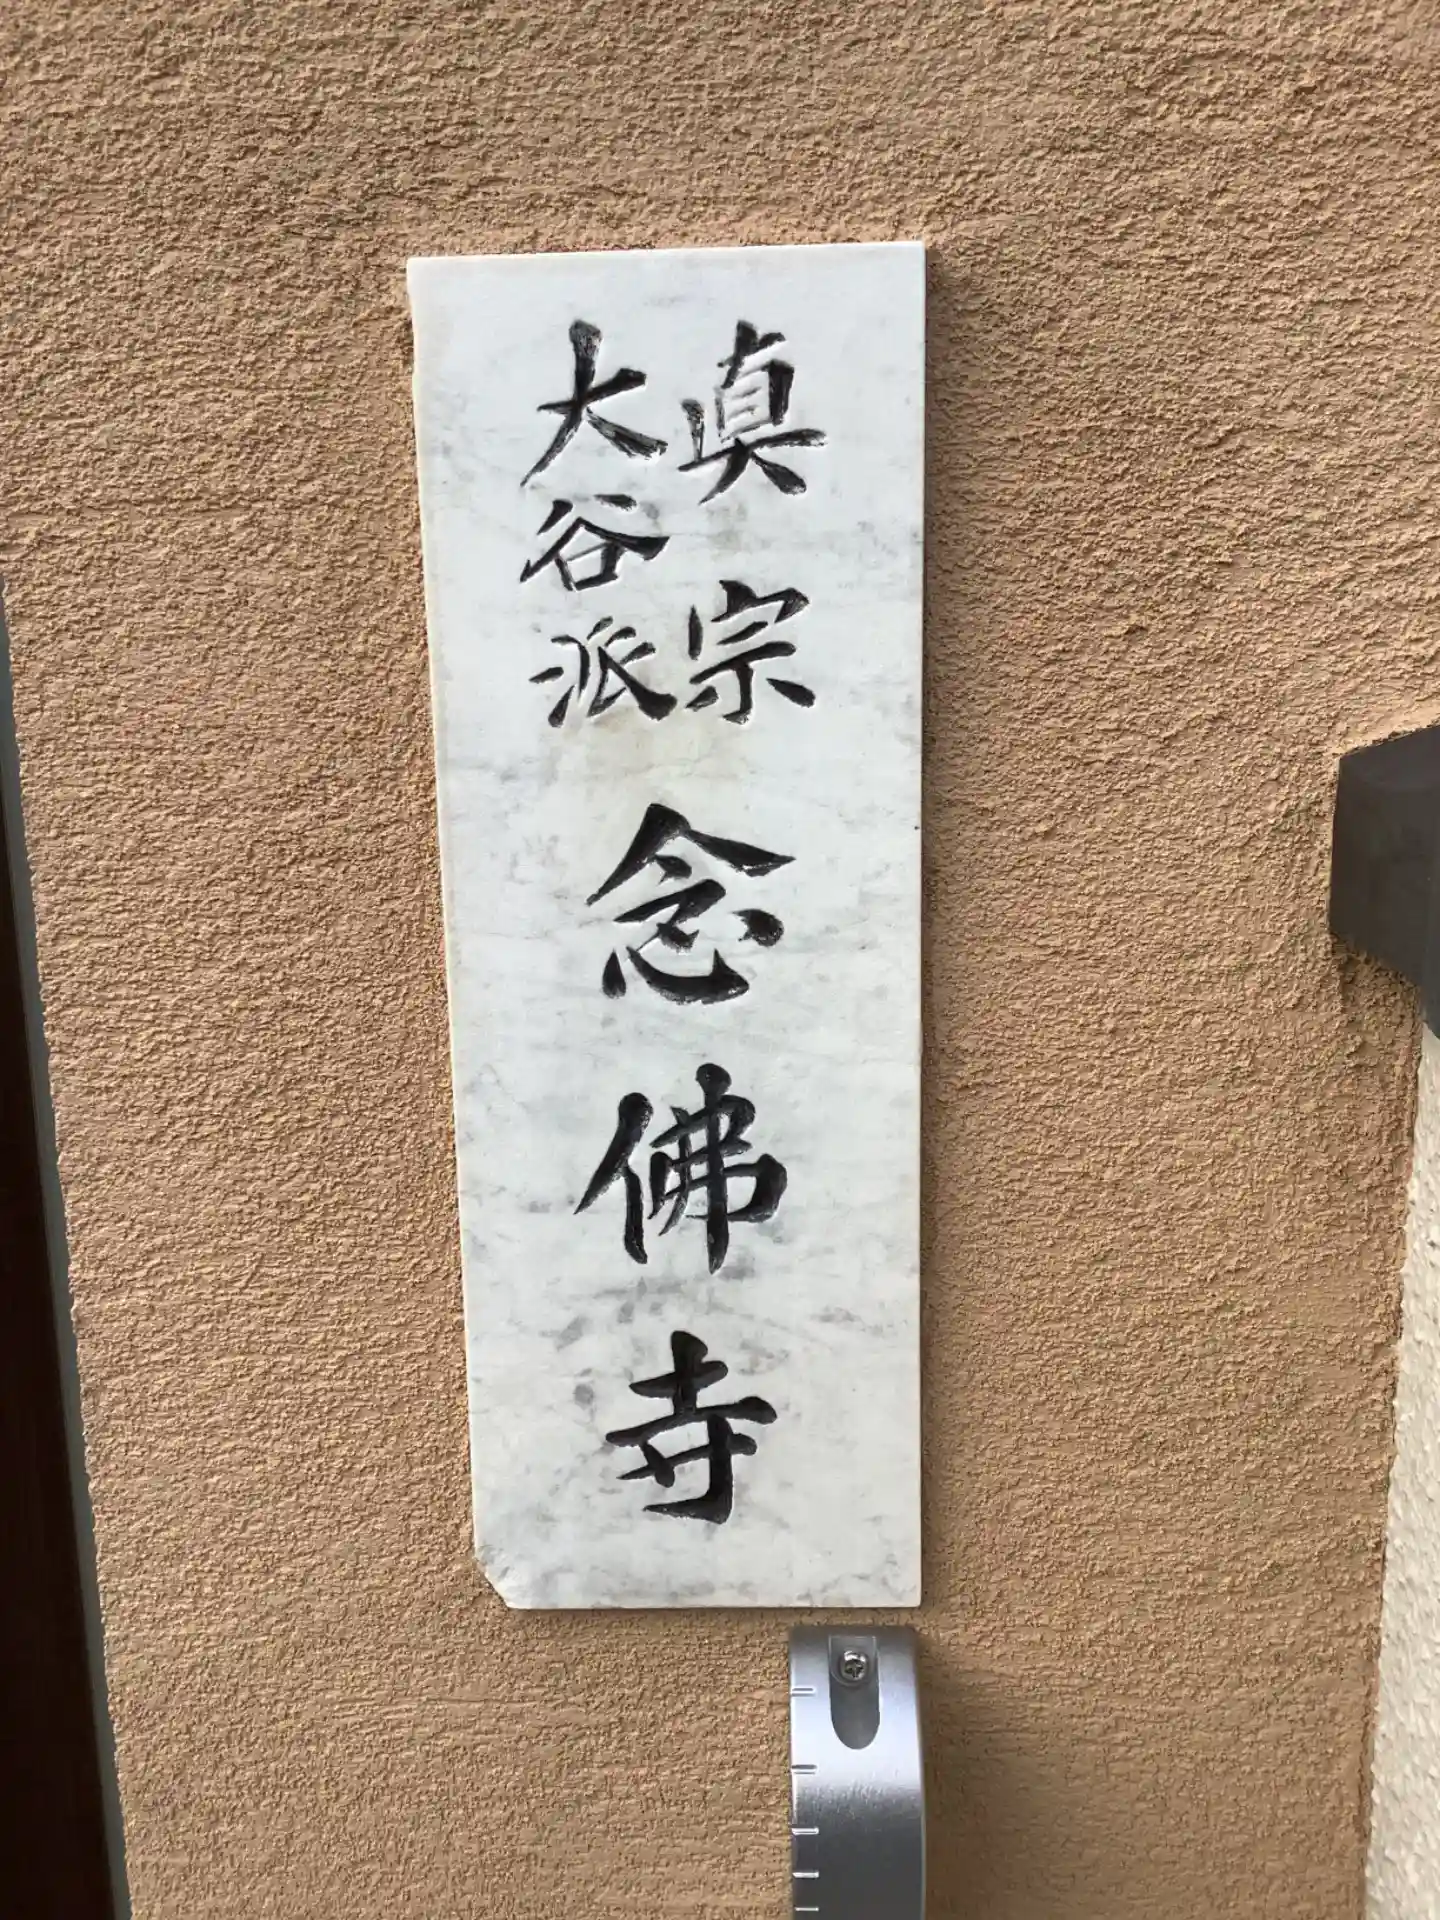 眞宗
大谷派
念佛寺